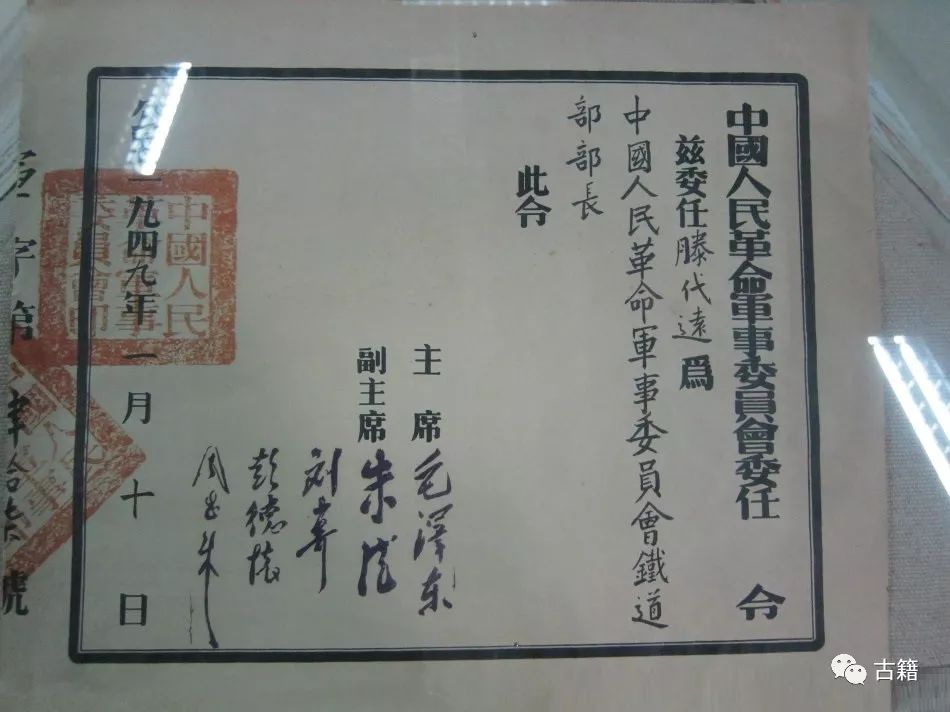 中國人民革命軍事委員會委任令
兹委任滕代遠爲
中國人民革命軍事委員會鐵道
部部長
此令
主席毛澤东
副主席朱德
刘少奇
彭德怀
周恩来
一九四九年一月十日
字第
拾
號
中國人民
革命軍事
委員會印
古籍